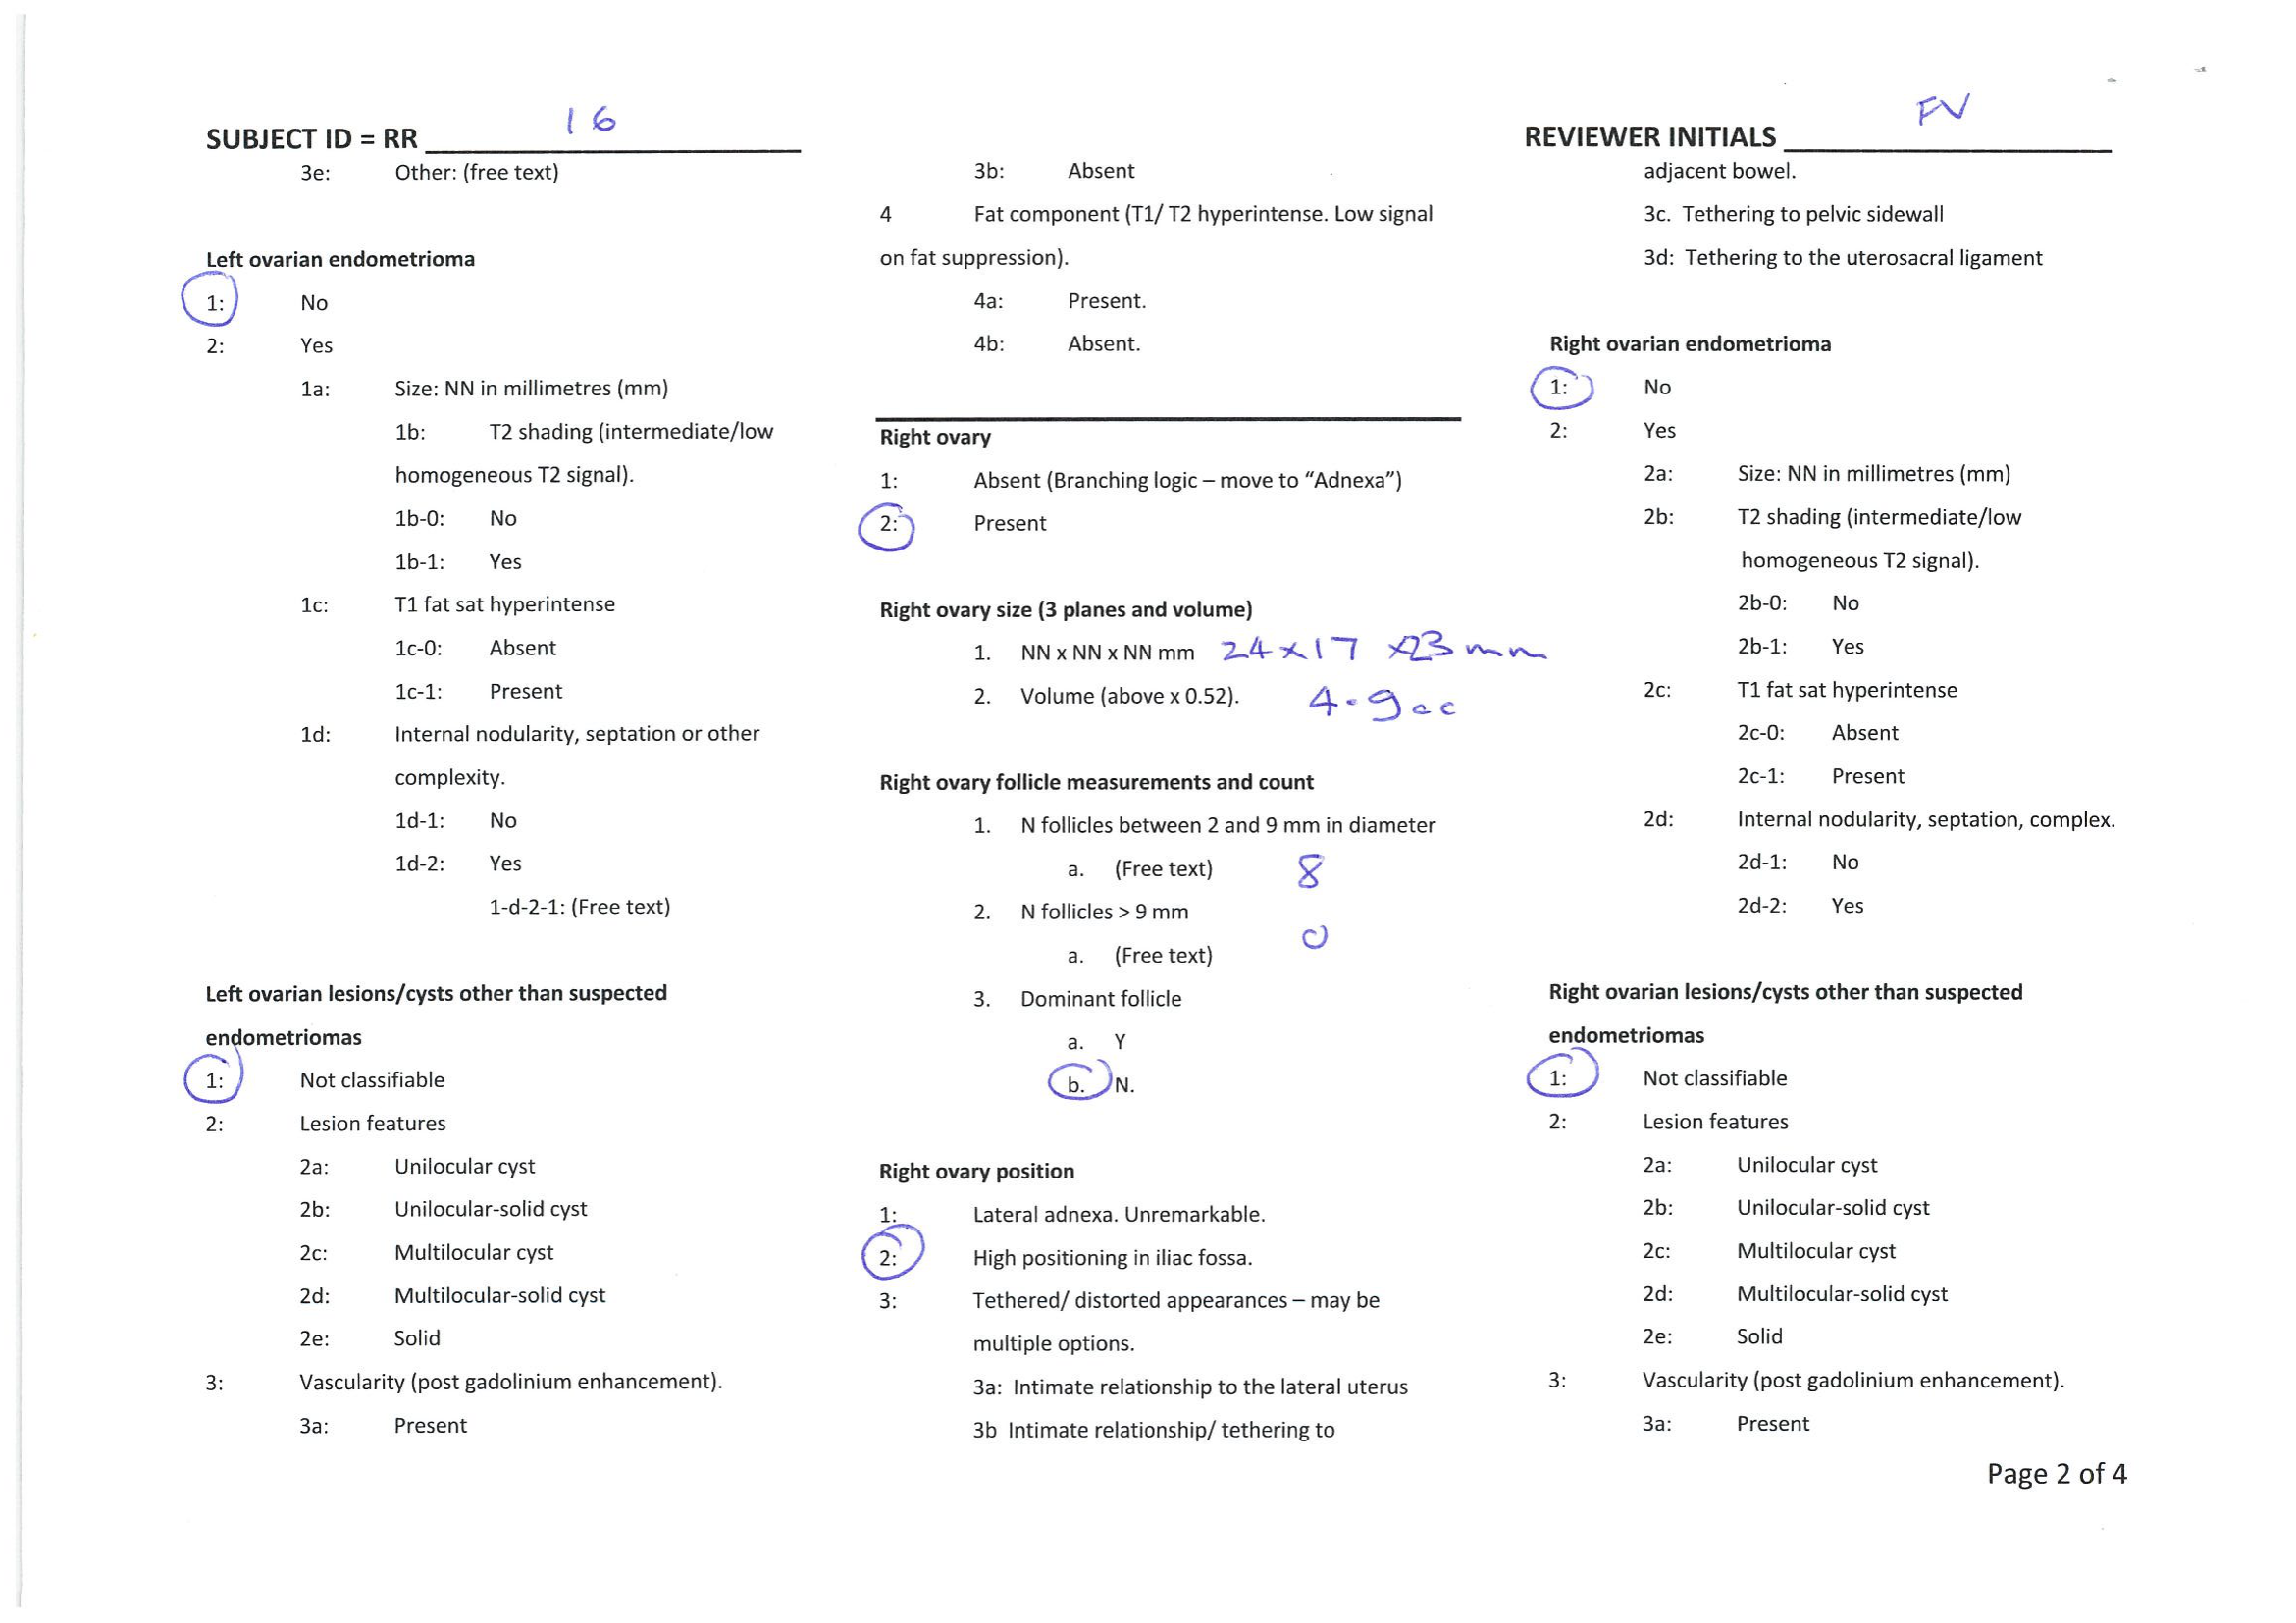 SUBJECT ID = RR 16
REVIEWER INITIALS FV
3e: Other: (free text)
Left ovarian endometrioma
1: No
2: Yes
1a: Size: NN in millimetres (mm)
1b: T2 shading (intermediate/low
homogeneous T2 signal).
1b-0: No
1b-1: Yes
1c: T1 fat sat hyperintense
1c-0: Absent
1c-1: Present
1d: Internal nodularity, septation or other
complexity.
1d-1: No
1d-2: Yes
1-d-2-1: (Free text)
Left ovarian lesions/cysts other than suspected
endometriomas
1: Not classifiable
2: Lesion features
2a: Unilocular cyst
2b: Unilocular-solid cyst
2c: Multilocular cyst
2d: Multilocular-solid cyst
2e: Solid
3: Vascularity (post gadolinium enhancement).
3a: Present
3b: Absent
4 Fat component (T1/ T2 hyperintense. Low signal
on fat suppression).
4a: Present.
4b: Absent.
Right ovary
1: Absent (Branching logic – move to “Adnexa”)
2: Present
Right ovary size (3 planes and volume)
1. NN x NN x NN mm 24 x 17 x 23 mm
2. Volume (above x 0.52). 4.9 cc
Right ovary follicle measurements and count
1. N follicles between 2 and 9 mm in diameter
a. (Free text) 8
2. N follicles > 9 mm
0
a. (Free text)
3. Dominant follicle
a. Y
b. N.
Right ovary position
1: Lateral adnexa. Unremarkable.
2: High positioning in iliac fossa.
3: Tethered/ distorted appearances – may be
multiple options.
3a: Intimate relationship to the lateral uterus
3b Intimate relationship/ tethering to
adjacent bowel.
3c. Tethering to pelvic sidewall
3d: Tethering to the uterosacral ligament
Right ovarian endometrioma
1: No
2: Yes
2a: Size: NN in millimetres (mm)
2b: T2 shading (intermediate/low
homogeneous T2 signal).
2b-0: No
2b-1: Yes
2c: T1 fat sat hyperintense
2c-0: Absent
2c-1: Present
2d: Internal nodularity, septation, complex.
2d-1: No
2d-2: Yes
Right ovarian lesions/cysts other than suspected
endometriomas
1: Not classifiable
2: Lesion features
2a: Unilocular cyst
2b: Unilocular-solid cyst
2c: Multilocular cyst
2d: Multilocular-solid cyst
2e: Solid
3: Vascularity (post gadolinium enhancement).
3a: Present
Page 2 of 4